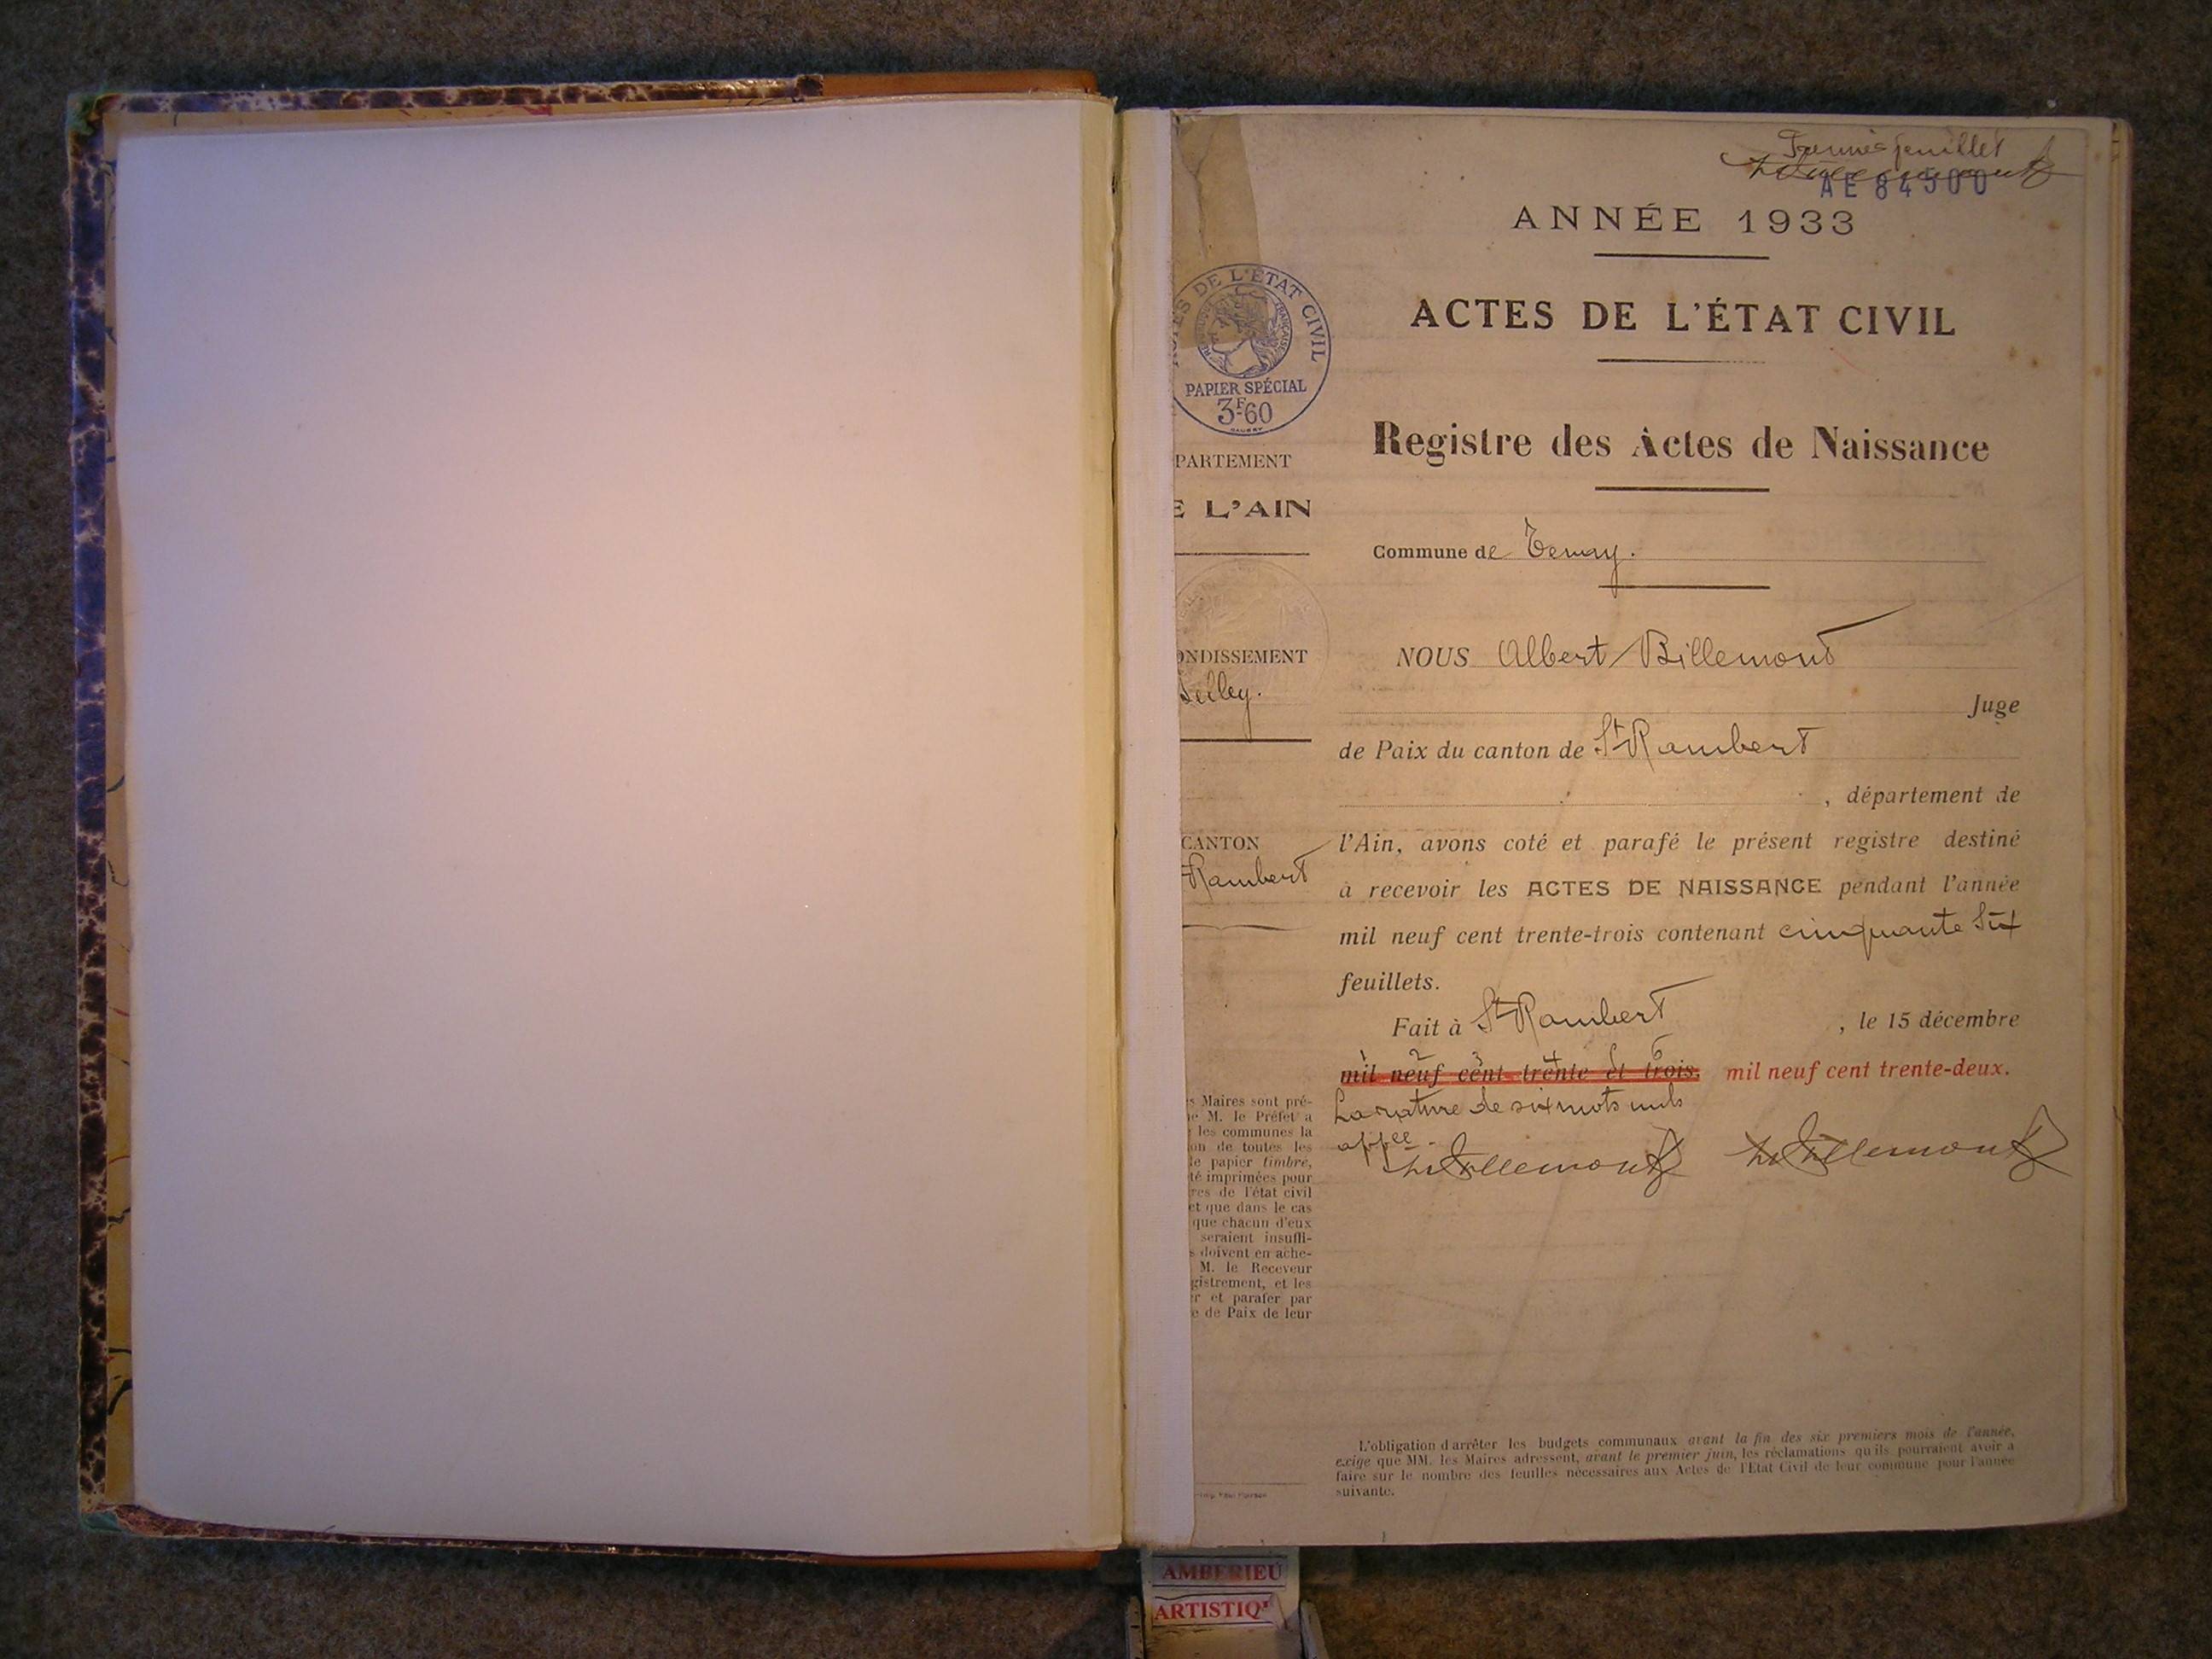 Premier feuillet
AE 84500
ANNÉE 1933
ACTES DE L'ÉTAT CIVIL
RÉPUBLIQUE FRANÇAISE
PAPIER SPÉCIAL
3F.60
ACTES DE L'ÉTAT CIVIL
Registre des Actes de Naissance
PARTEMENT
E L'AIN
Commune de Tenay.
NOUS Albert Billemont
ONDISSEMENT
Belley.
Juge
de Paix du canton de St Rambert
, département de
CANTON
Rambert
l'Ain, avons coté et parafé le présent registre destiné
à recevoir les ACTES DE NAISSANCE pendant l'année
mil neuf cent trente-trois contenant cinquante six
feuillets.
Fait à St Rambert , le 15 décembre
1 2 3 4 5 6
mil neuf cent trente et trois. mil neuf cent trente-deux.
La rature de six mots nuls
appée.
Billemont Billemont
s Maires sont pré-
e M. le Préfet a
les communes la
on de toutes les
le papier timbré,
té imprimées pour
res de l'état civil
et que dans le cas
que chacun d'eux
seraient insuffi-
s doivent en ache-
M. le Receveur
gistrement, et les
er et parafer par
e de Paix de leur
L'obligation d'arrêter les budgets communaux avant la fin des six premiers mois de l'année,
exige que MM. les Maires adressent, avant le premier juin, les réclamations qu'ils pourraient avoir à
faire sur le nombre des feuilles nécessaires aux Actes de l'Etat Civil de leur commune pour l'année
suivante.
AMBERIEU
ARTISTIQ